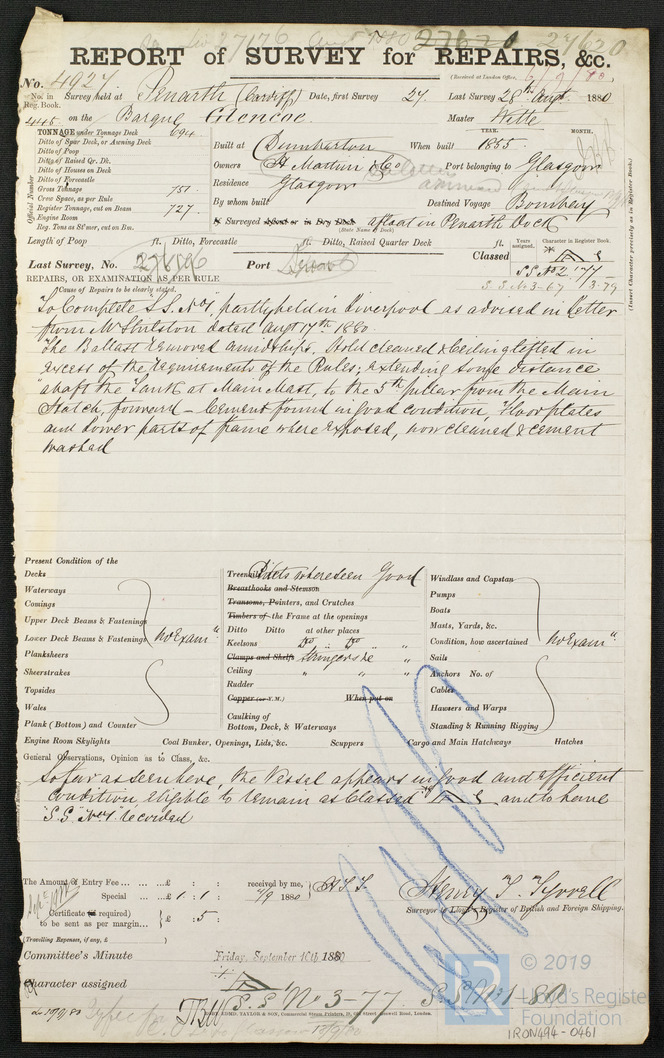 27176 27620
REPORT of SURVEY for REPAIRS, &c.
(Received at London Office, 6/9/80)
No. 4927
No. in Reg. Book. Survey held at Penarth (Cardiff) Date, first Survey 27. Last Survey 28th Augt 1880
on the Barque Glencoe Master Witte
TONNAGE under Tonnage Deck 694
Ditto of Spar Deck, or Awning Deck
Ditto of Poop
Ditto of Raised Qr. Dk.
Ditto of Houses on Deck
Ditto of Forecastle
Gross Tonnage 751.
Crew Space, as per Rule
Register Tonnage, cut on Beam 727.
Engine Room
Reg. Tons as St'mer, cut on Bm.
Official Number
Built at Dumbarton When built YEAR. 1855 MONTH.
Owners Port belonging to Glasgow
Residence Glasgow
By whom built Destined Voyage Bombay
If Surveyed afloat or in Dry Dock afloat in Penarth Dock
(State Name of Dock)
Length of Poop ft. Ditto, Forecastle ft. Ditto, Raised Quarter Deck ft.
Years assigned. Character in Register Book.
Classed
(Insert Character precisely as in Register Book.)
Last Survey, No. Port
S.S. No 2
S.S. No 3-67 3.79
REPAIRS, OR EXAMINATION AS PER RULE
Cause of Repairs to be clearly stated.
To Complete "S.S. No 1", partly held in Liverpool as advised in letter
from Mr Shilston dated Augt 17th 1880.
The Ballast removed amidships. Hold cleaned & Ceiling lifted in
excess of the requirements of the Rules; extending some distance
abaft the Tank at Main Mast, to the 5th pillar from the Main
Hatch, forward - Cement found in good condition, Floorplates
and lower parts of frame where exposed, now cleaned & cement
washed
Present Condition of the
Decks
Waterways
Comings
Upper Deck Beams & Fastenings
Lower Deck Beams & Fastenings
Planksheers
Sheerstrakes
Topsides
Wales
Plank (Bottom) and Counter
Engine Room Skylights
"No Exam"
Treenails Rivets where seen Good
Breasthooks and Stemson
Transoms, Pointers, and Crutches
Timbers of the Frame at the openings
Ditto Ditto at other places
Keelsons Do " Do "
Clamps and Shelfs Stringers &c "
Ceiling " " "
Rudder
Copper (or Y.M.) When put on
Caulking of
Bottom, Deck, & Waterways
Coal Bunker, Openings, Lids, &c. Scuppers
Windlass and Capstan
Pumps
Boats
Masts, Yards, &c.
Condition, how ascertained "No Exam"
Sails
Anchors No. of
Cables
Hawsers and Warps
Standing & Running Rigging
Cargo and Main Hatchways Hatches
General Observations, Opinion as to Class, &c.
So far as seen here, the Vessel appears in good and efficient
condition, eligible to remain as Classed and to have
"S.S. No 1" recorded
The Amount of Entry Fee ... £ : : received by me,
Special ... £ 1 : 1 : 7/9 1880
Certificate (if required) £ : 5 :
to be sent as per margin...
(Travelling Expenses, if any, £ )
Henry T. Tyrrell
Surveyor to Lloyd's Register of British and Foreign Shipping.
Committee's Minute Friday, September 10th 1880
Character assigned
S.S No 3-77. S.S No 1-80
© 2019
LR
Lloyd's Register
Foundation
IRON494-0461